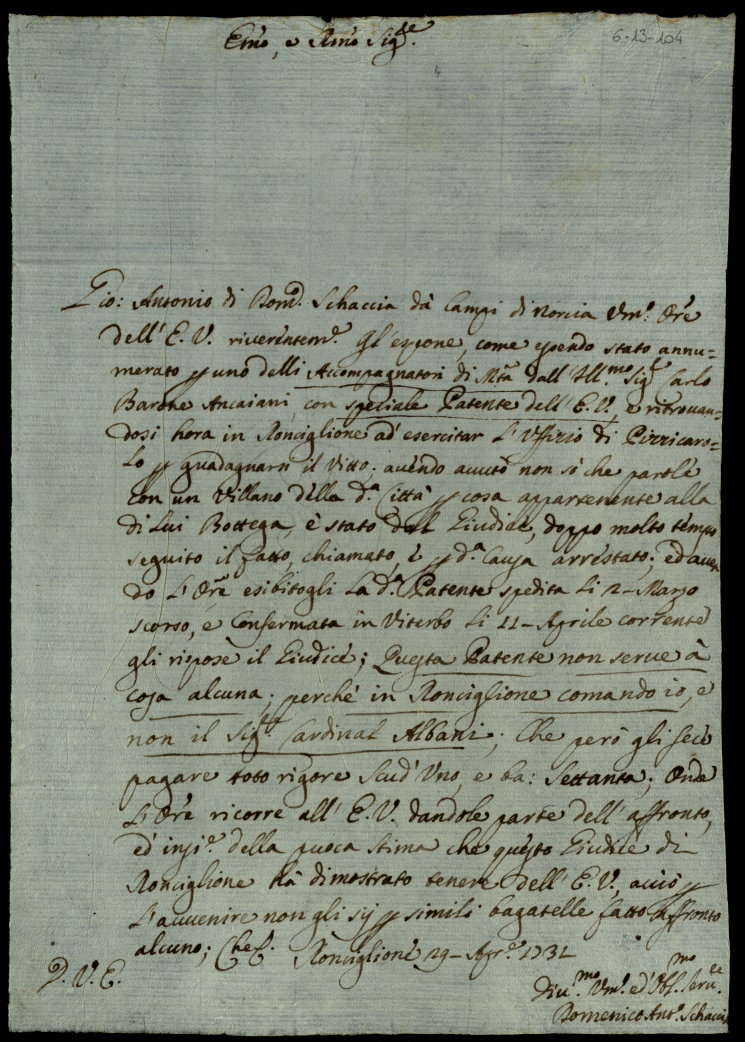 6-13-104
Em̃o, e Rm̃o Sig.re
Gio: Antonio di Dom.o Schaccia da Campi di Norcia Um.o Ore
dell' E. V. riverentem.e gl'espone, come essendo stato annu=
merato p uno delli Accompagnatori di Mta dall' Ill.mo Sig.r Carlo
Barone Ancaiani, con speciale Patente dell' E. V., e ritrovan=
dosi hora in Ronciglione ad' esercitar l' Uffizio di Pizzicaro=
lo p guadagnarsi il Vitto; avendo avuto non sò che parole
con un Villano della d.a Città p cosa appartenente alla
di Lui Bottega, è stato dal Giudice, doppo molto tempo
seguito il fatto, chiamato, e p d.a Causa arrestato; ed aven
do l' Ore esibitogli la d.a Patente spedita li 2- Marzo
scorso, e Confermata in Viterbo li 11- Aprile corrente
gli rispose il Giudice; Questa Patente non serve à
cosa alcuna; perche in Ronciglione comando io, e
non il Sig.r Cardinal Albani; Che però gli fece
pagare toto rigore Scudi Uno, e ba: Settanta; Onde
l' Ore ricorre all' E. V. dandole parte dell' affronto,
ed' insi.e della puoca stima che questo Giudice di
Ronciglione hà dimostrato tenere dell' E. V., acciò p
l' avvenire non gli sij p simili bagatelle fatto affronto
alcuno; Che &. Ronciglione 29- Apr.e 1731
D. V. E.
Div.mo Um.o ed' Obl.mo Serv.re
Domenico Ant.o Schaccia